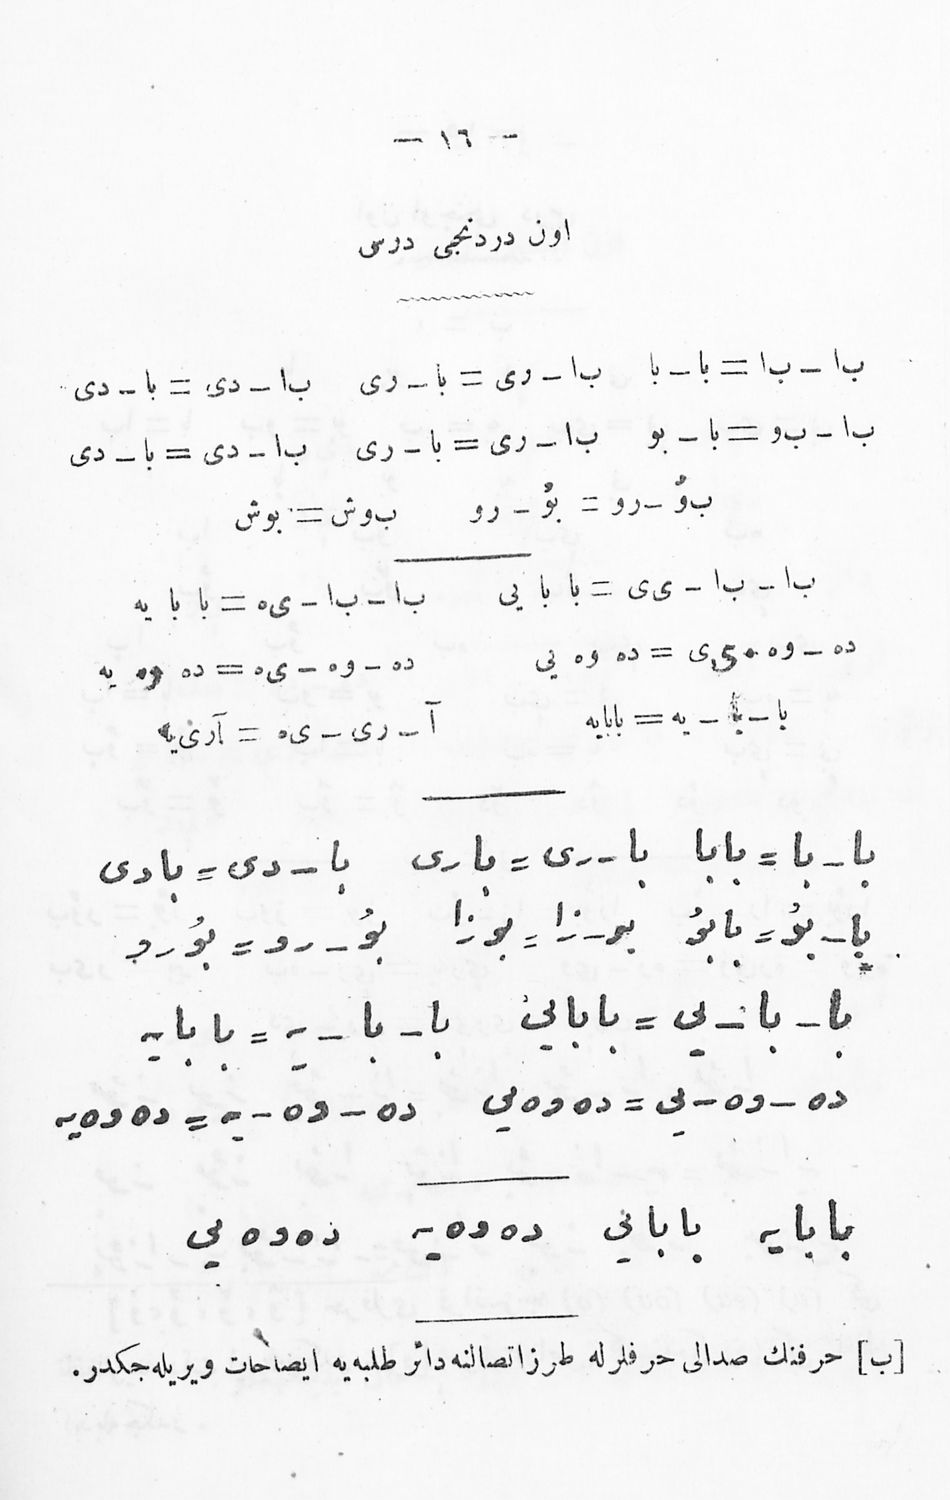 — ١٦ —
اون دردنجی درسی
ب‍ا – ب‍ا = با – با ب‍ا – ری = با – ری ب‍ا – دی = با – دی
ب‍ا – ب‍و = با – بو ب‍ا – ری = با – ری ب‍ا – دی = با – دی
ب‍وُ – رو = بوُ – رو ب‍وش = بوش
ب‍ا – ب‍ا – ی‍ی = با با یی ب‍ا – ب‍ا – ی‍ه = با با یه
ده – وه – ی‍ی = ده وه یی ده – وه – ی‍ه = ده وه یه
با – با – یه = بابایه آ – ری – ی‍ه = آری‌یه
با – با = بابا با – ری = باری با – دی = بادی
با – بوُ = بابوُ بو – زا = بوزا بوُ – رو = بوُرو
با – با – یی = بابایی با – با – یه = بابایه
ده – وه – یی = ده‌وه‌یی ده – وه – یه = ده‌وه‌یه
بابایه بابایی ده‌وه‌یه ده‌وه‌یی
[ب] حرفنك صدالی حرفلرله طرز اتصالنه دائر طلبه‌یه ایضاحات ویریله‌جكدر.